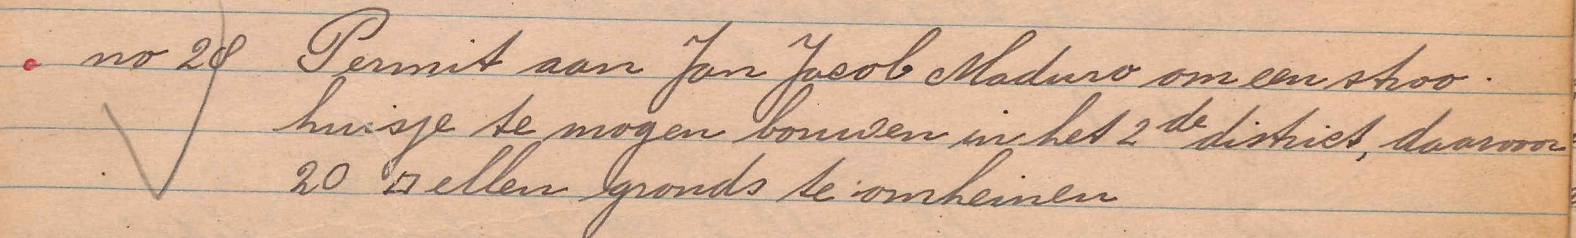 no 28 Permit aan Jan Jacob Maduro om een stroo.
huisje te mogen bouwen in het 2de district, daarvoor
20 □ ellen gronds te omheinen